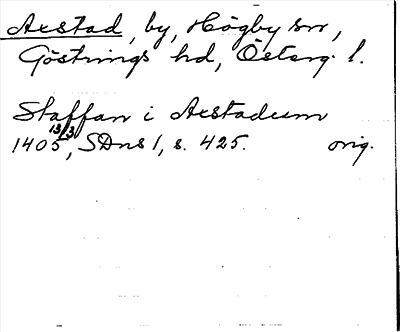 Axstad, by, Högby sn,
Göstrings hd, Österg. l.
Staffan i Axstadum
1405 13/3, SDns 1, s. 425. orig.